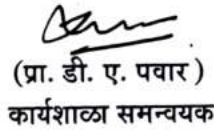 (प्रा. डी. ए. पवार)
कार्यशाळा समन्वयक